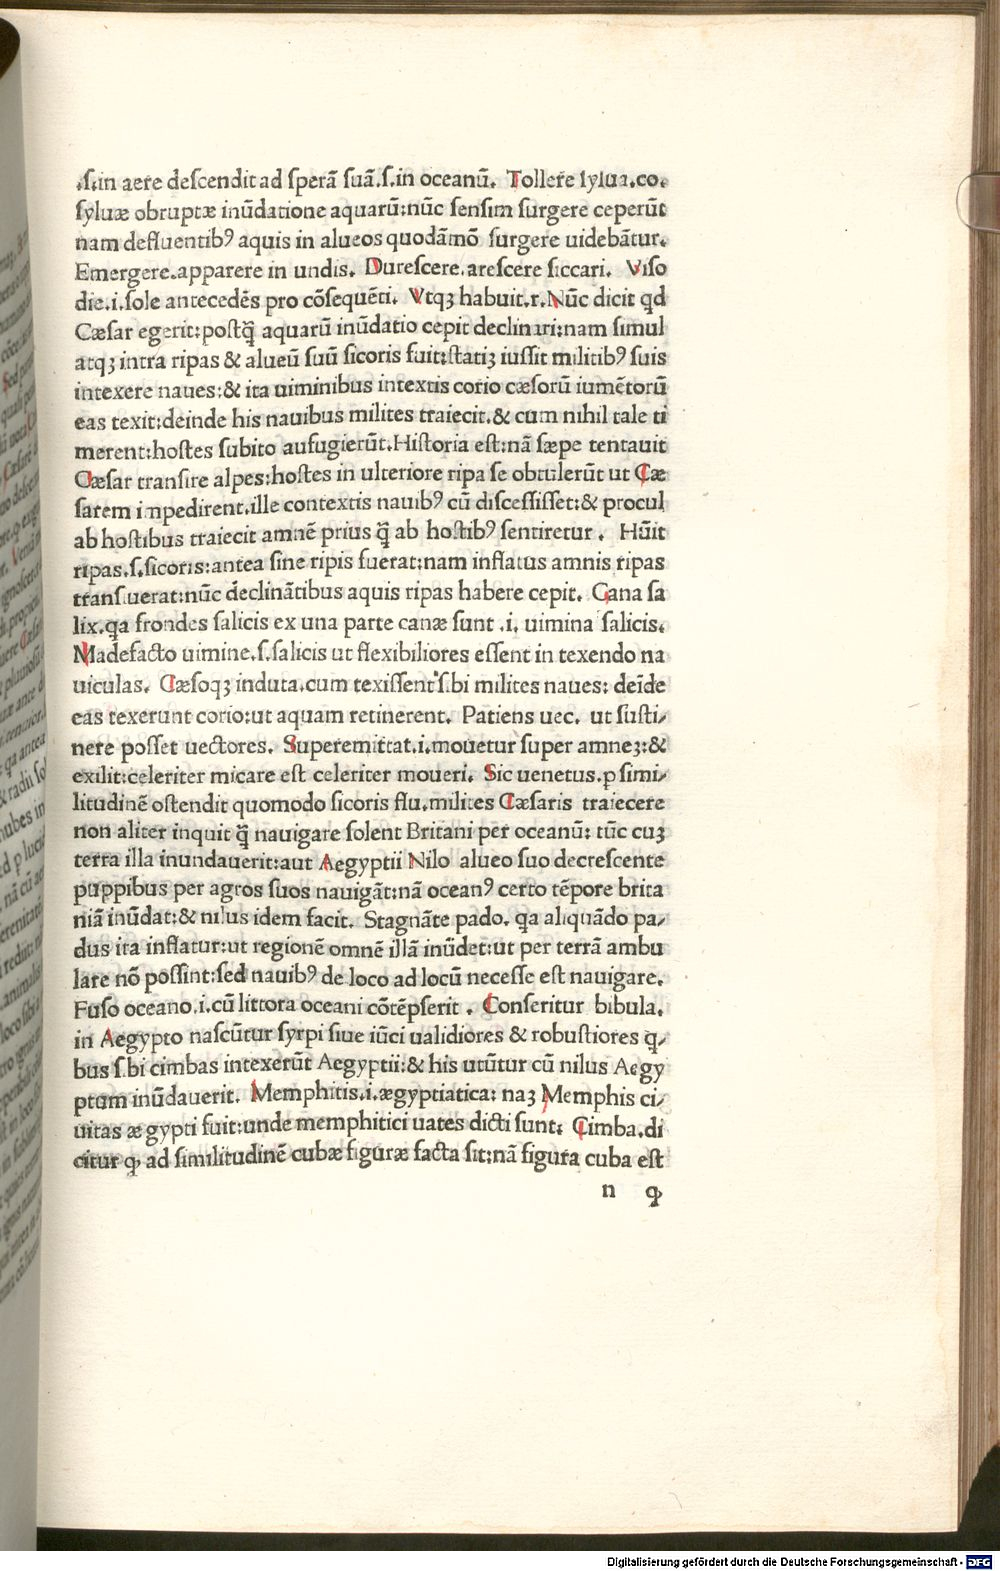 .ſ.in aere deſcendit ad ſperã ſuã.ſ.in oceanũ. Tollere ſylua.co.
ſyluæ obruptæ inũdatione aquarũ:nũc ſenſim ſurgere ceperũt
nam defluentibꝰ aquis in alueos quodãmõ ſurgere uidebãtur.
Emergere.apparere in undis. Dureſcere.areſcere ſiccari. Viſo
die.i.ſole antecedẽs pro cõſequẽti. Vtqꝫ habuit.r.Nũc dicit qd
Cæſar egerit:poſtq̃ aquarũ inũdatio cepit declinari:nam ſimul
atqꝫ intra ripas & alueũ ſuũ ſicoris fuit:ſtatiꝫ iuſſit militibꝰ ſuis
intexere naues:& ita uiminibus intextis corio cæſorũ iumẽtorũ
eas texit:deinde his nauibus milites traiecit.& cum nihil tale ti
merent:hoſtes ſubito aufugierũt.Hiſtoria eſt:nã ſæpe tentauit
Cæſar tranſire alpes:hoſtes in ulteriore ripa ſe obtulerũt ut Cæ
ſarem inpedirent.ille contextis nauibꝰ cũ diſceſſiſſet:& procul
ab hoſtibus traiecit amnẽ prius q̃ ab hoſtibꝰ ſentiretur. Hũit
ripas.ſ.ſicoris:antea ſine ripis fuerat:nam inflatus amnis ripas
tranſiuerat:nũc declinãtibus aquis ripas habere cepit. Cana ſa
lix.qa frondes ſalicis ex una parte canæ ſunt .i. uimina ſalicis.
Madefacto uimine.ſ.ſalicis ut flexibiliores eſſent in texendo na
uiculas. Cæſoqꝫ induta.cum texiſſent ſibi milites naues: deĩde
eas texerunt corio:ut aquam retinerent. Patiens uec. ut ſuſti/
nere poſſet uectores. Superemittat.i.mouetur super amneꝫ:&
exilit:celeriter micare eſt celeriter moueri. Sic uenetus.ꝑ ſimi/
litudinẽ oſtendit quomodo ſicoris flu.milites Cæſaris traiecere
non aliter inquit q̃ nauigare ſolent Britani per oceanũ: tũc cuꝫ
terra illa inundauerit:aut Aegyptii Nilo alueo ſuo decreſcente
puppibus per agros ſuos nauigãt:nã oceanꝰ certo tẽpore brita
niã inũdat:& nilus idem facit. Stagnãte pado. qa aliquãdo pa/
dus ita inflatur:ut regionẽ omnẽ illã inũdet:ut per terrã ambu
lare nõ poſſint:ſed nauibꝰ de loco ad locũ neceſſe eſt nauigare.
Fuſo oceano.i.cũ littora oceani cõtẽpſerit . Conſeritur bibula.
in Aegypto naſcũtur ſyrpi ſiue iũci ualidiores & robuſtiores q̃/
bus ſibi cimbas intexerũt Aegyptii:& his utũtur cũ nilus Aegy
ptum inũdauerit. Memphitis.i.ægyptiatica: naꝫ Memphis ci/
uitas ægypti fuit:unde memphitici uates dicti ſunt: Cimba.di
citur ꝙ ad ſimilitudinẽ cubæ figuræ facta ſit:nã figura cuba eſt
n ꝙ
Digitalisierung gefördert durch die Deutsche Forschungsgemeinschaft - DFG